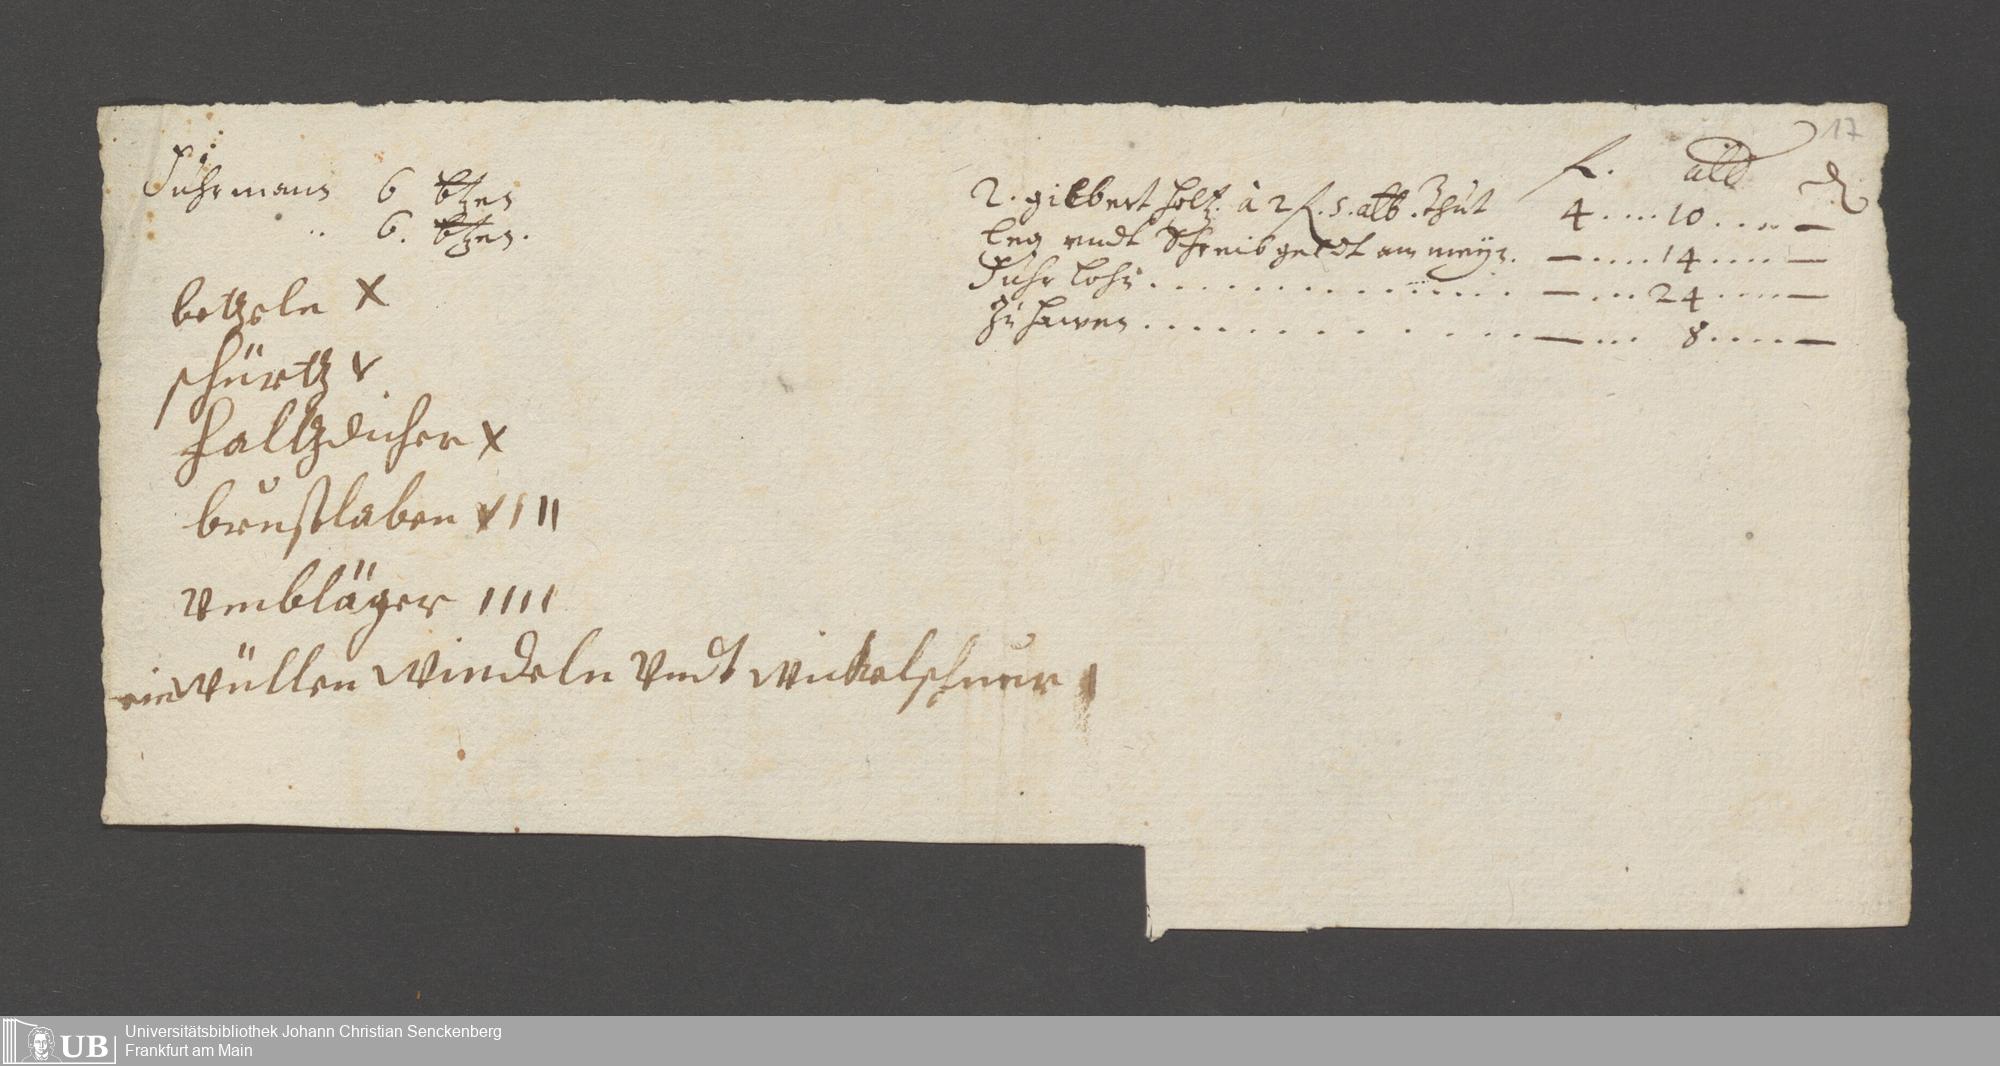 17
Fuhrmans 6 btzen
" 6. btzen.
betzeln X
schürtz V
haltzdicher X
brustlaben VIIII
Vmbläger IIII
ein wüllen windeln Vndt wickelschnur I
f. alb ₰
2. gilbert holtz. à 2 f. 5. alb. thut 4 .... 10 .... —
leg vndt Schreibgeldt am meyn. — .... 14 .... —
Fuhr lohn .............. — ... 24 .... —
Zu hawen .............. — ... 8 .... —
UB
Universitätsbibliothek Johann Christian Senckenberg
Frankfurt am Main